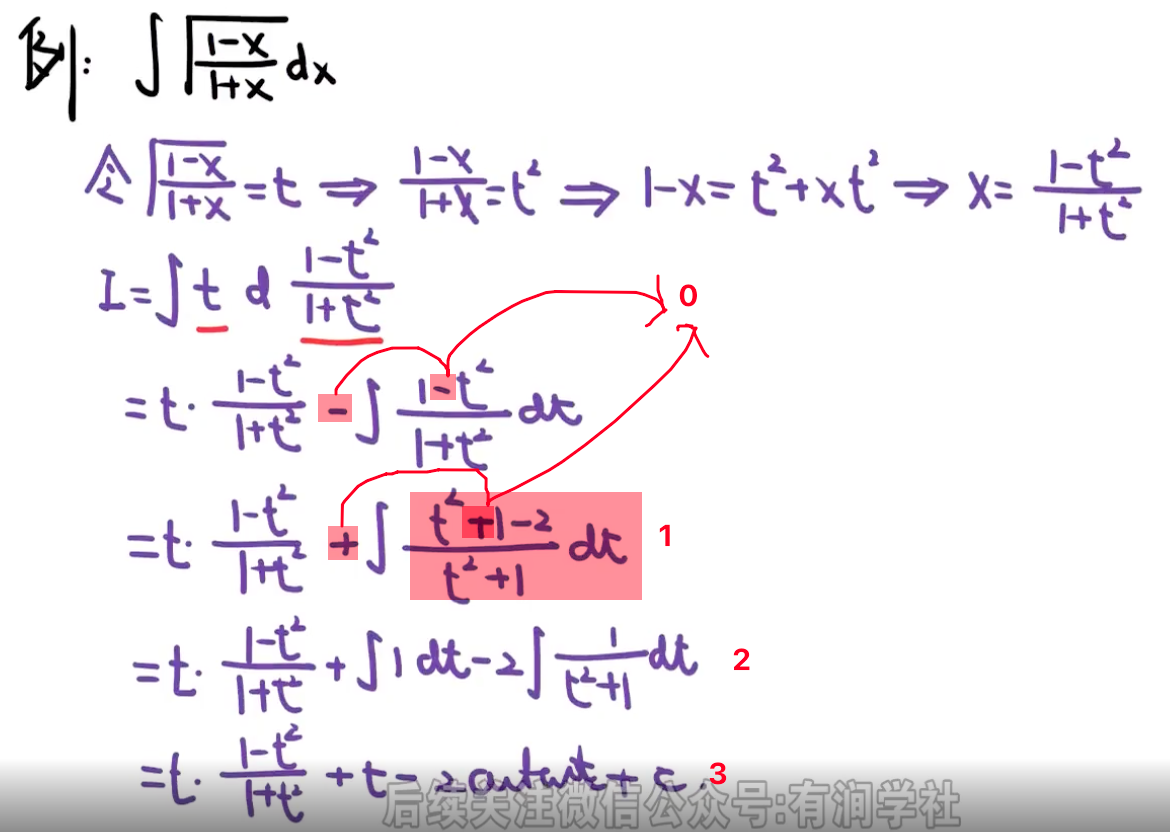 例: ∫√((1-x)/(1+x)) dx
令 √((1-x)/(1+x)) = t ⇒ (1-x)/(1+x) = t² ⇒ 1-x = t²+xt² ⇒ x = (1-t²)/(1+t²)
I = ∫ t d (1-t²)/(1+t²)
0
= t· (1-t²)/(1+t²) - ∫ (1-t²)/(1+t²) dt
= t· (1-t²)/(1+t²) + ∫ (t²+1-2)/(t²+1) dt 1
= t· (1-t²)/(1+t²) + ∫1 dt - 2∫ 1/(t²+1) dt 2
= t· (1-t²)/(1+t²) + t - 2arctant + c. 3
后续关注微信公众号:有涧学社